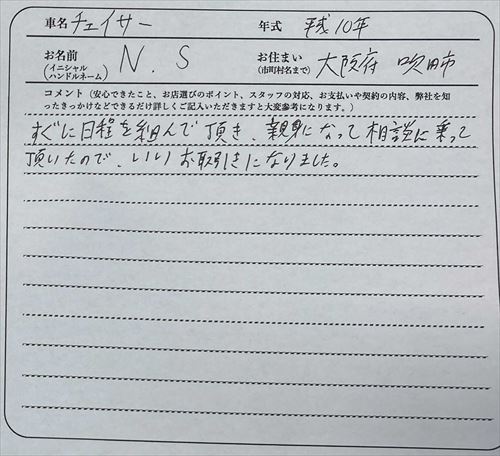 車名 チェイサー 年式 平成10年
お名前 (イニシャル ハンドルネーム) N.S お住まい (市町村名まで) 大阪府 吹田市
コメント（安心できたこと、お店選びのポイント、スタッフの対応、お支払いや契約の内容、弊社を知
ったきっかけなどできるだけ詳しくご記入いただきますと大変参考になります。）
すぐに日程を組んで頂き、親身になって相談に乗って
頂いたので、いいお取引きになりました。